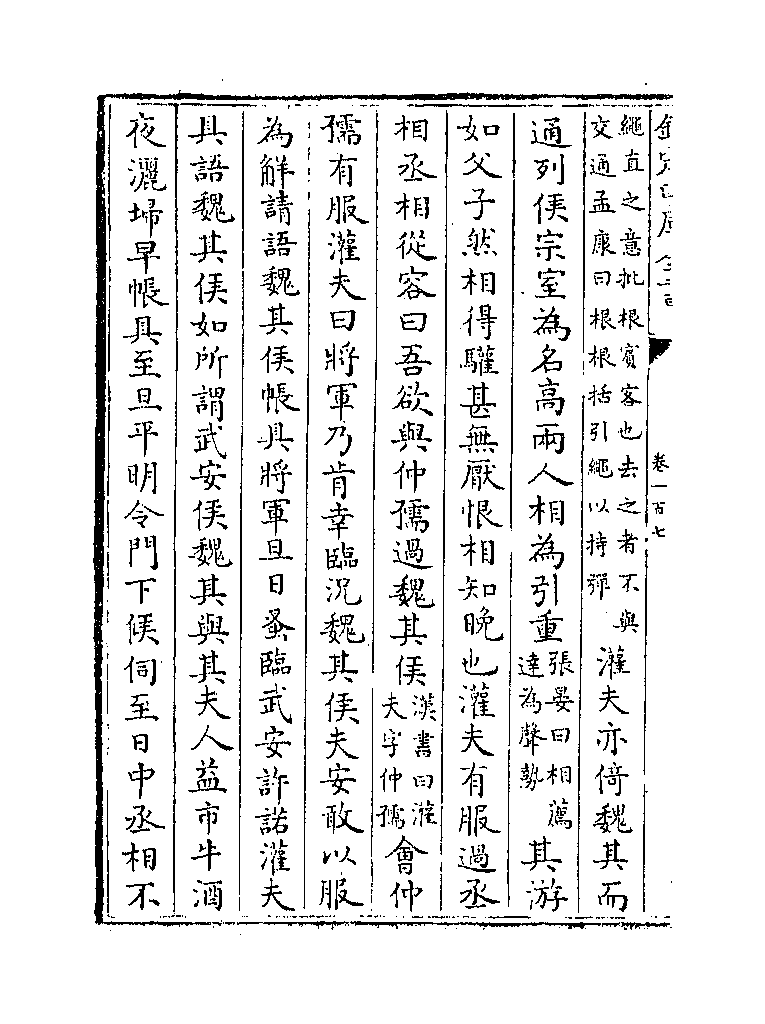 欽定四庫全書
卷一百七
繩直之意批根賓客也去之者不與
交通孟康曰根根括引繩以持彈
灌夫亦倚魏其而
通列侯宗室為名高兩人相為引重
張晏曰相薦
達為聲勢
其游
如父子然相得驩甚無厭恨相知晚也灌夫有服過丞
相丞相從容曰吾欲與仲孺過魏其侯
漢書曰灌
夫字仲孺
會仲
孺有服灌夫曰將軍乃肯幸臨況魏其侯夫安敢以服
為解請語魏其侯帳具將軍旦日蚤臨武安許諾灌夫
具語魏其侯如所謂武安侯魏其與其夫人益市牛酒
夜灑埽早帳具至旦平明令門下候伺至日中丞相不